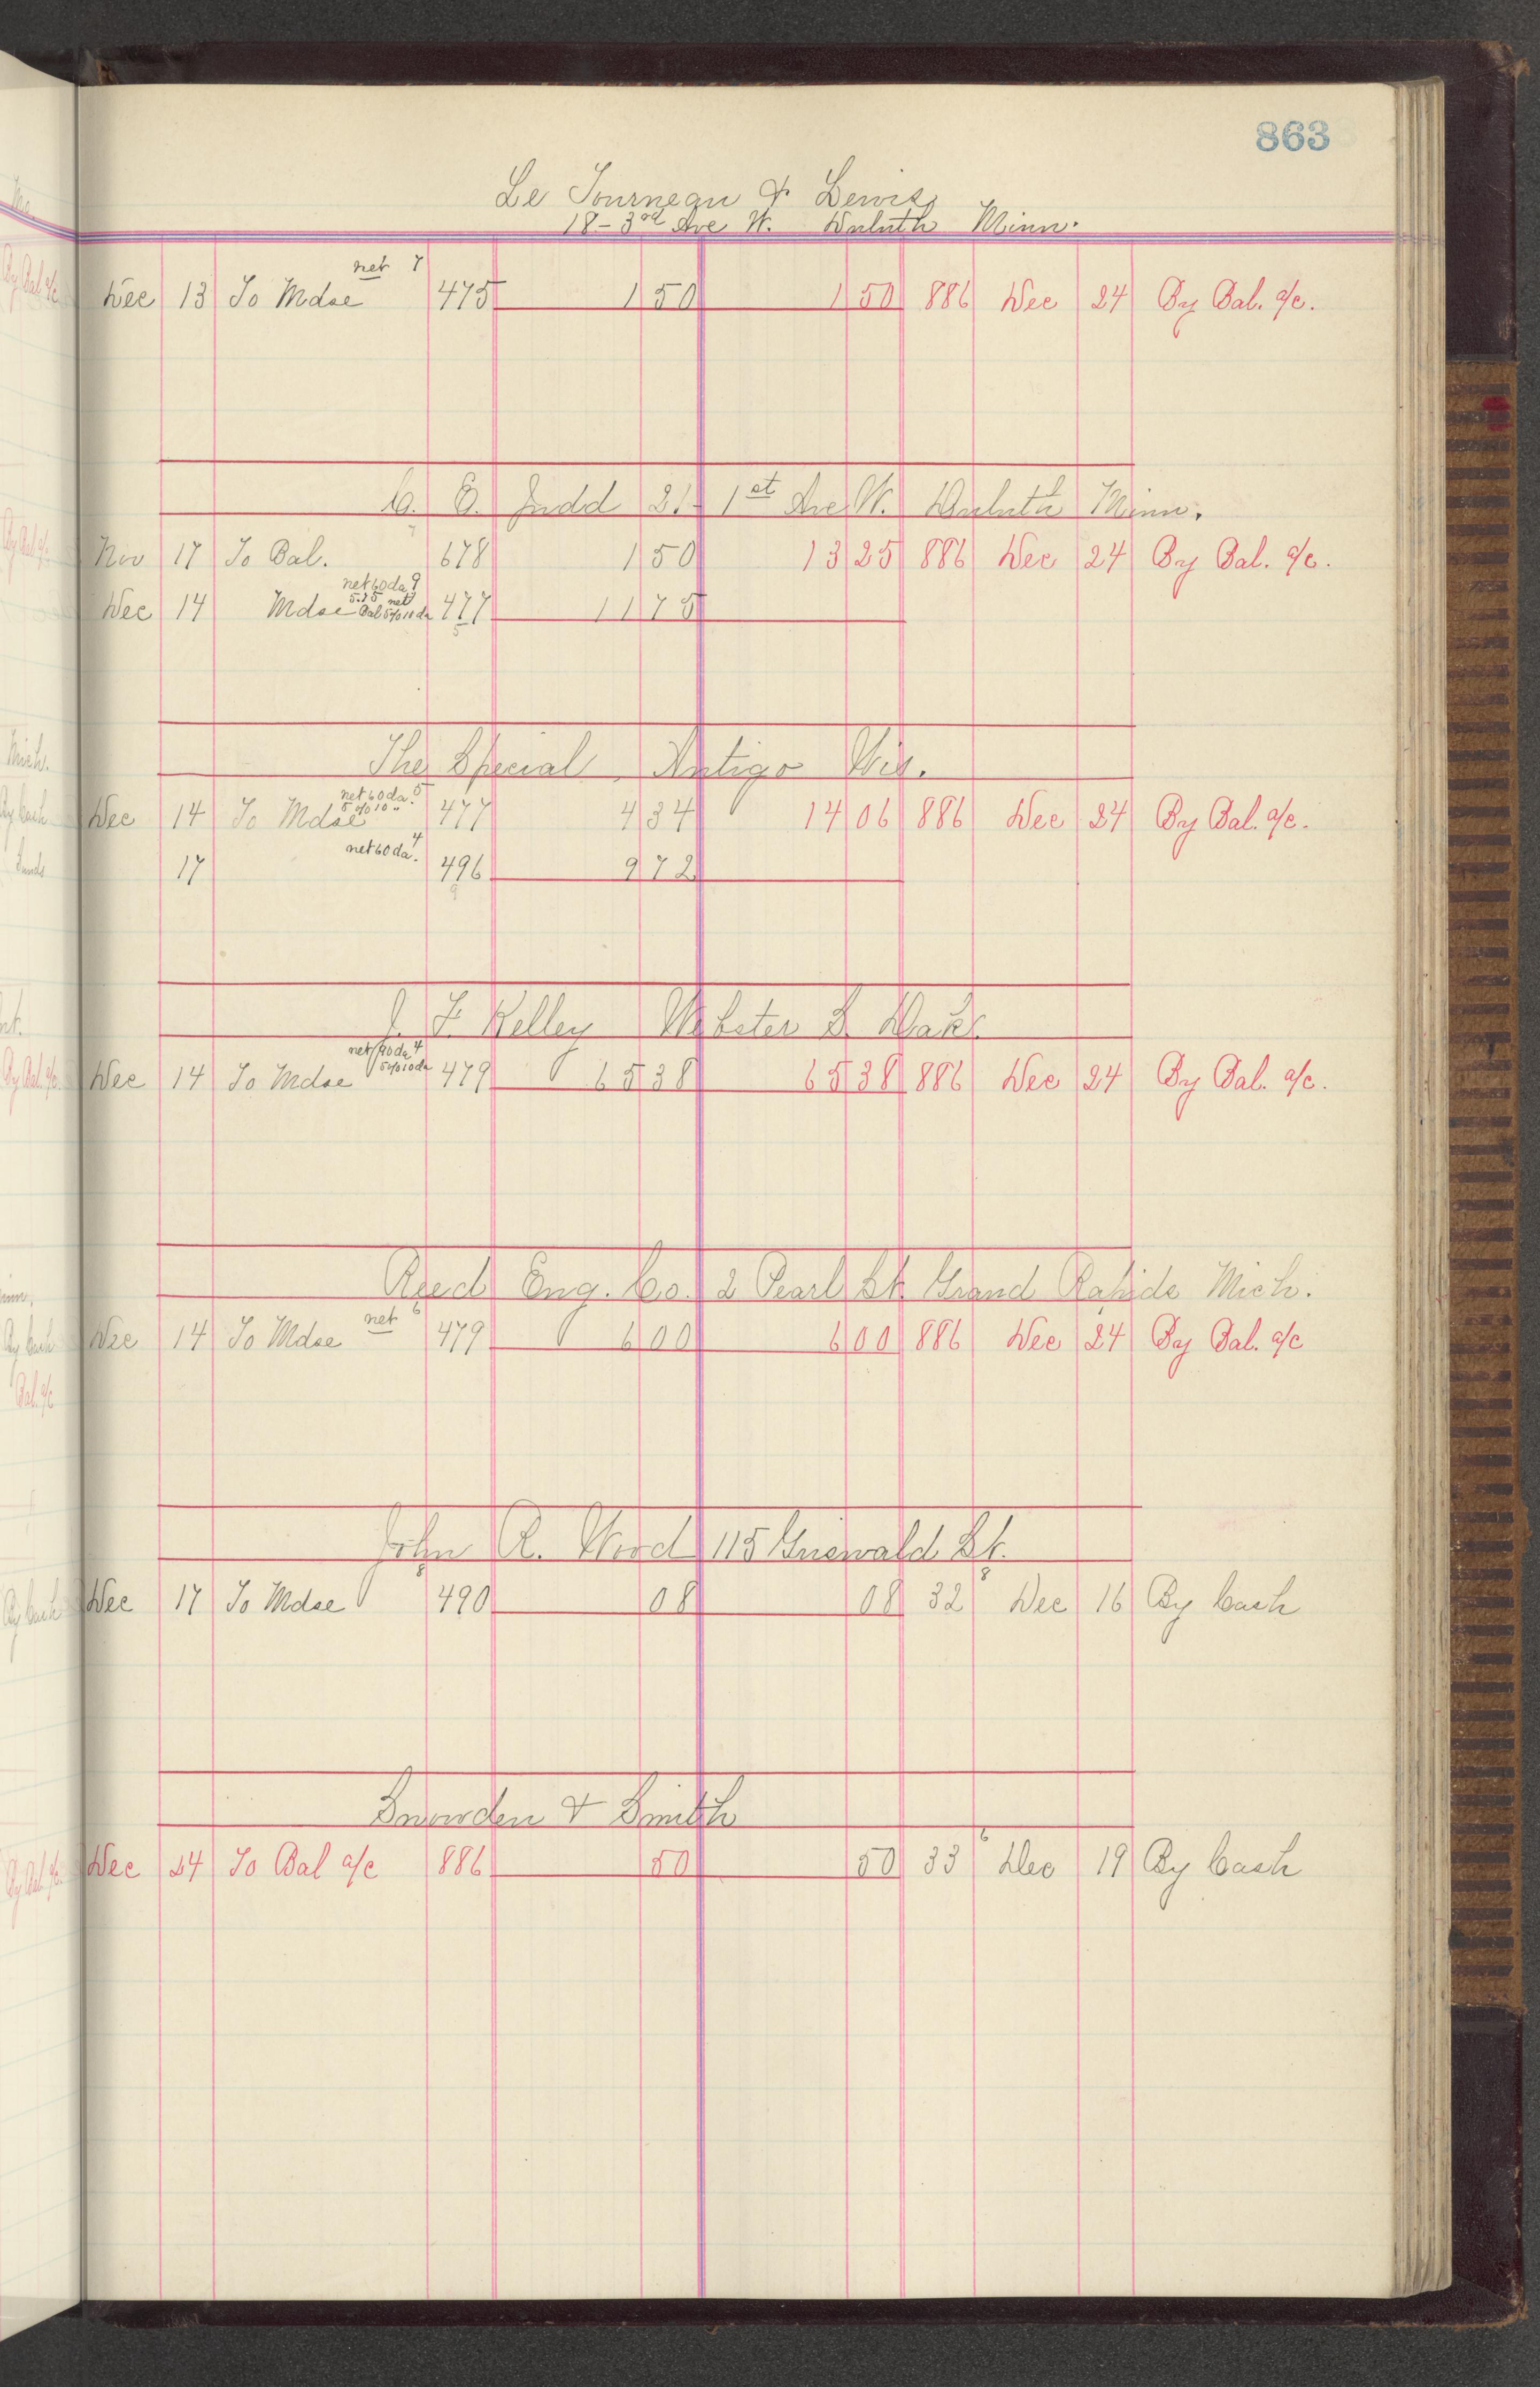 863
Le Tourneau & Lewis
18 - 3rd Ave W. Duluth Minn.
net 7
Dec 13 To Mdse 475 1 50 1 50 886 Dec 24 By Bal. a/c.
C. E. Judd 21 - 1st Ave W. Duluth Minn.
Nov 17 To Bal. 678 1 50 13 25 886 Dec 24 By Bal. a/c.
net 60 da 9
5.75 net
Dec 14 Mdse Bal 5% 10 da 477 11 75
5
The Special Antigo Wis.
net 60 da. 5
5% 10 "
Dec 14 To Mdse 477 4 34 14 06 886 Dec 24 By Bal. a/c.
net 60 da. 4
17 496 9 72
9
J. F. Kelley Webster S. Dak.
net 90 da 4
5% 10 da
Dec 14 To Mdse 479 65 38 65 38 886 Dec 24 By Bal. a/c.
Reed Eng. Co. 2 Pearl St. Grand Rapids Mich.
net 6
Dec 14 To Mdse 479 6 00 6 00 886 Dec 24 By Bal. a/c
John R. Wood 115 Griswald St.
8 8
Dec 17 To Mdse 490 08 08 32 Dec 16 By Cash
Snowden & Smith
6
Dec 24 To Bal a/c 886 50 50 33 Dec 19 By Cash